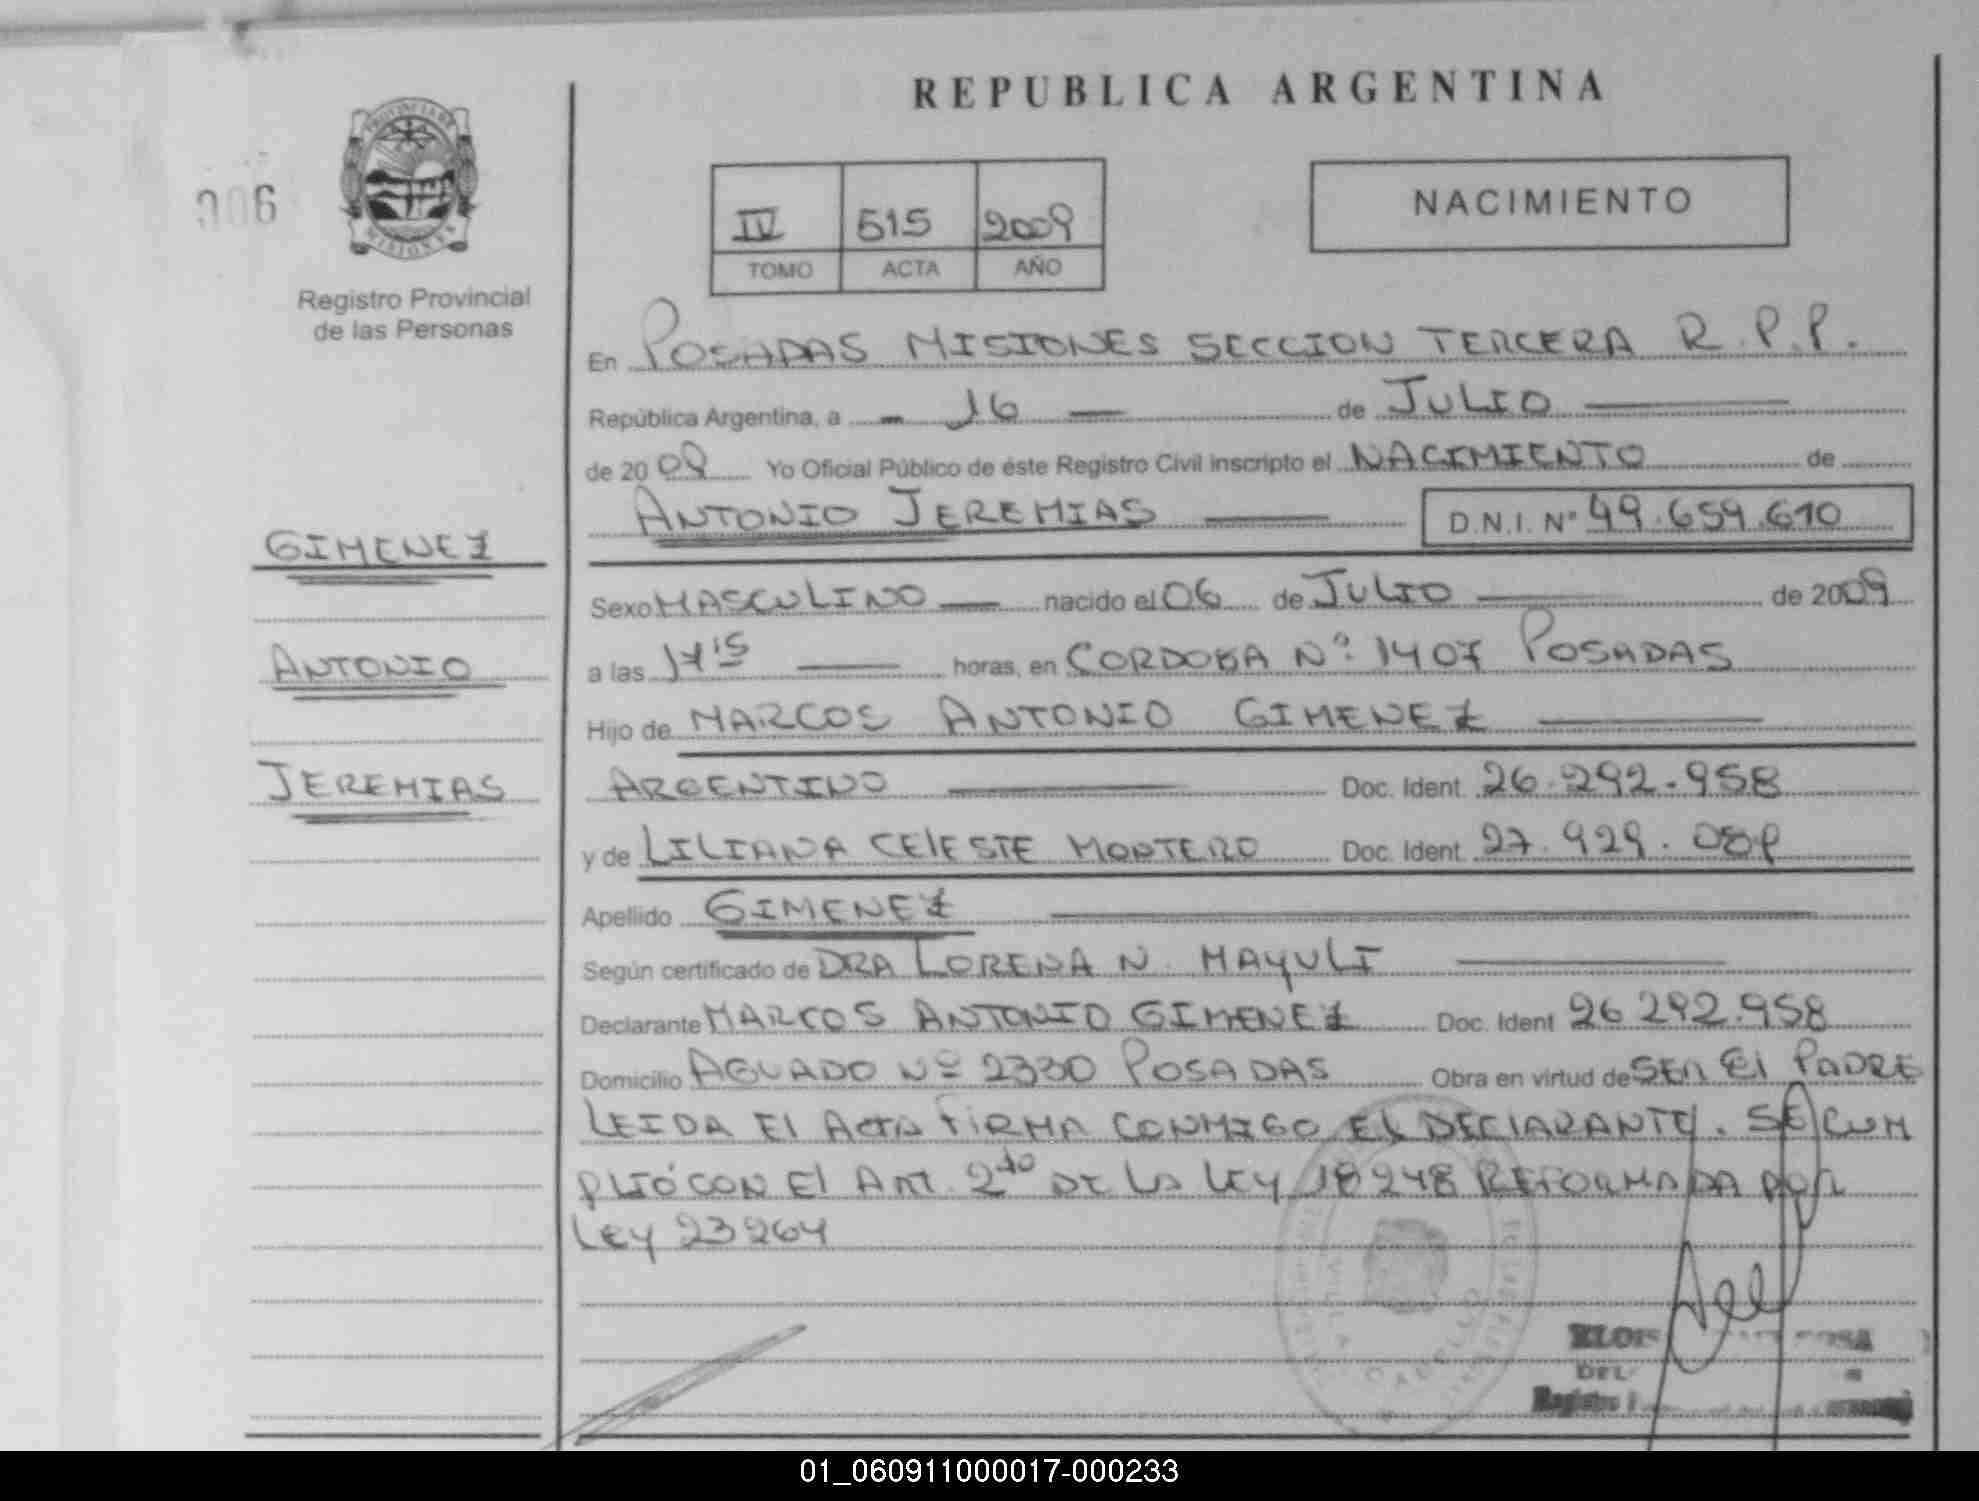 REPUBLICA ARGENTINA
006
PROVINCIA DE
MISIONES
Registro Provincial
de las Personas
IV 515 2009
TOMO ACTA AÑO
NACIMIENTO
En POSADAS MISIONES SECCION TERCERA R.P.P.
República Argentina, a - 16 — de JULIO —
de 2009 Yo Oficial Público de éste Registro Civil inscripto el NACIMIENTO de
ANTONIO JEREMIAS — D.N.I. Nº 49.659.610
GIMENEZ
ANTONIO
JEREMIAS
Sexo MASCULINO — nacido el 06 de JULIO — de 2009
a las 17'15 — horas, en CORDOBA Nº 1407 POSADAS
Hijo de MARCOS ANTONIO GIMENEZ —
ARGENTINO — Doc. Ident. 26.292.958
y de LILIANA CELESTE MONTERO Doc. Ident. 27.929.089
Apellido GIMENEZ —
Según certificado de DRA LORENA N. MAYULI —
Declarante MARCOS ANTONIO GIMENEZ Doc. Ident 26 292.958
Domicilio AGUADO Nº 2330 POSADAS Obra en virtud de SER El PADRE
LEIDA El ACTA FIRMA CONMIGO EL DECLARANTE. SE CUM
PLIÓ CON El ART. 2do DE LA LEY 18248 REFORMADA POR
LEY 23264
Registro
01_060911000017-000233